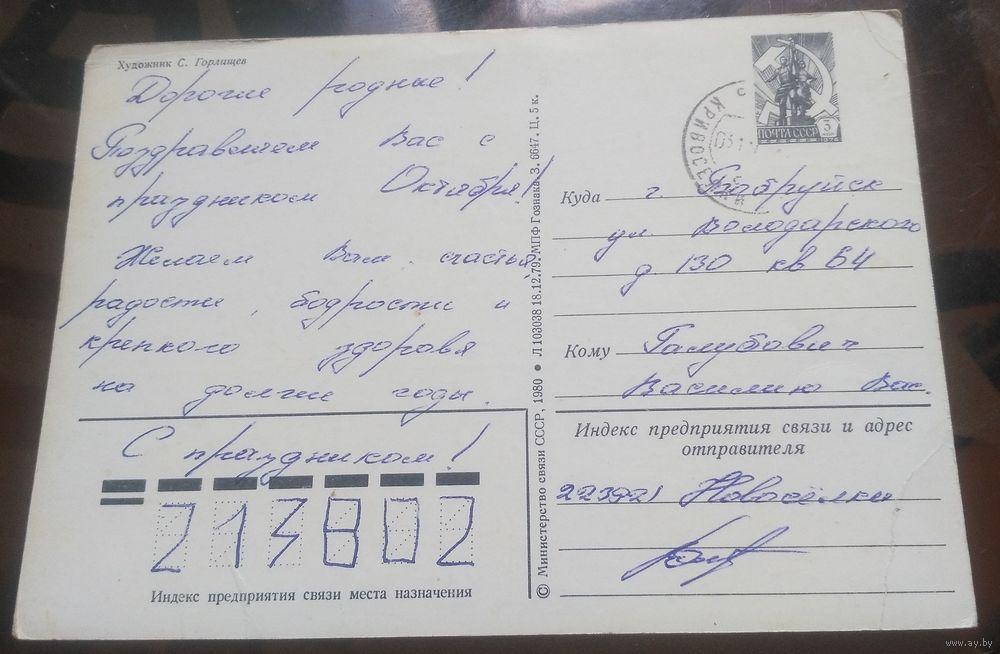 Художник С. Горлищев
Дорогие родные!
Поздравляем Вас с
праздником Октября!
Желаем Вам счастья,
радости, бодрости и
крепкого здоровя
на долгие годы.
С праздником!
213802
Индекс предприятия связи места назначения
© Министерство связи СССР, 1980 • Л 103038 18.12.79. МПФ Гознака. З. 6647. Ц. 5 к.
ПОЧТА СССР 3
1976
КРИВОСЭ
Куда г. Бобруйск
ул. Володарского
д 130 кв 64
Кому Галубович
Василию Вас.
Индекс предприятия связи и адрес
отправителя
223921 Новосёлки
www.ay.by